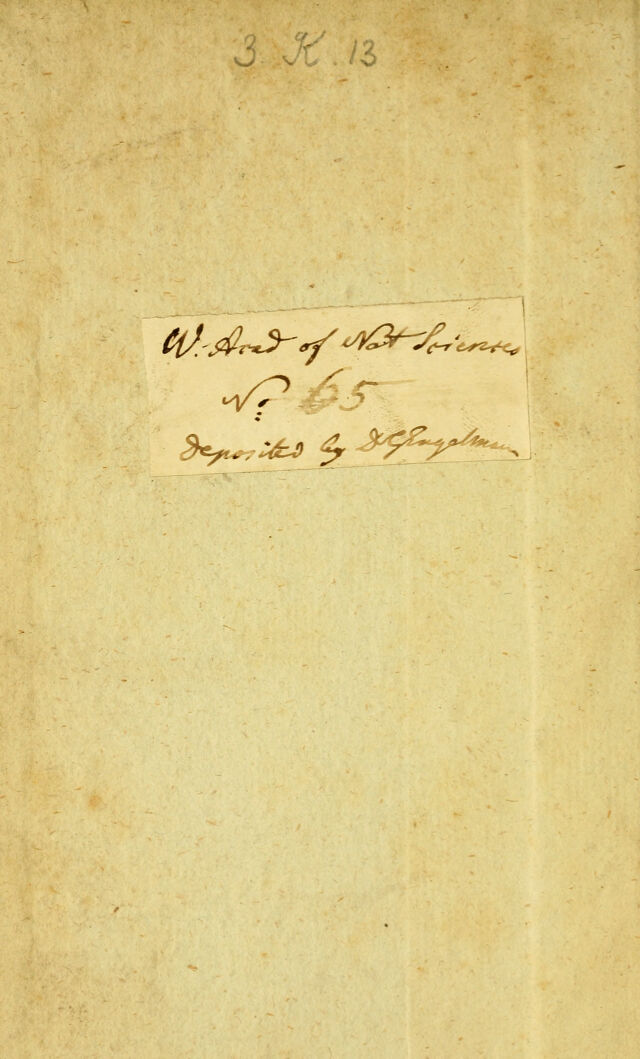 3 K. 13
W. Acad of Nat Sciences
No 65
Deposited by D G Engelmann